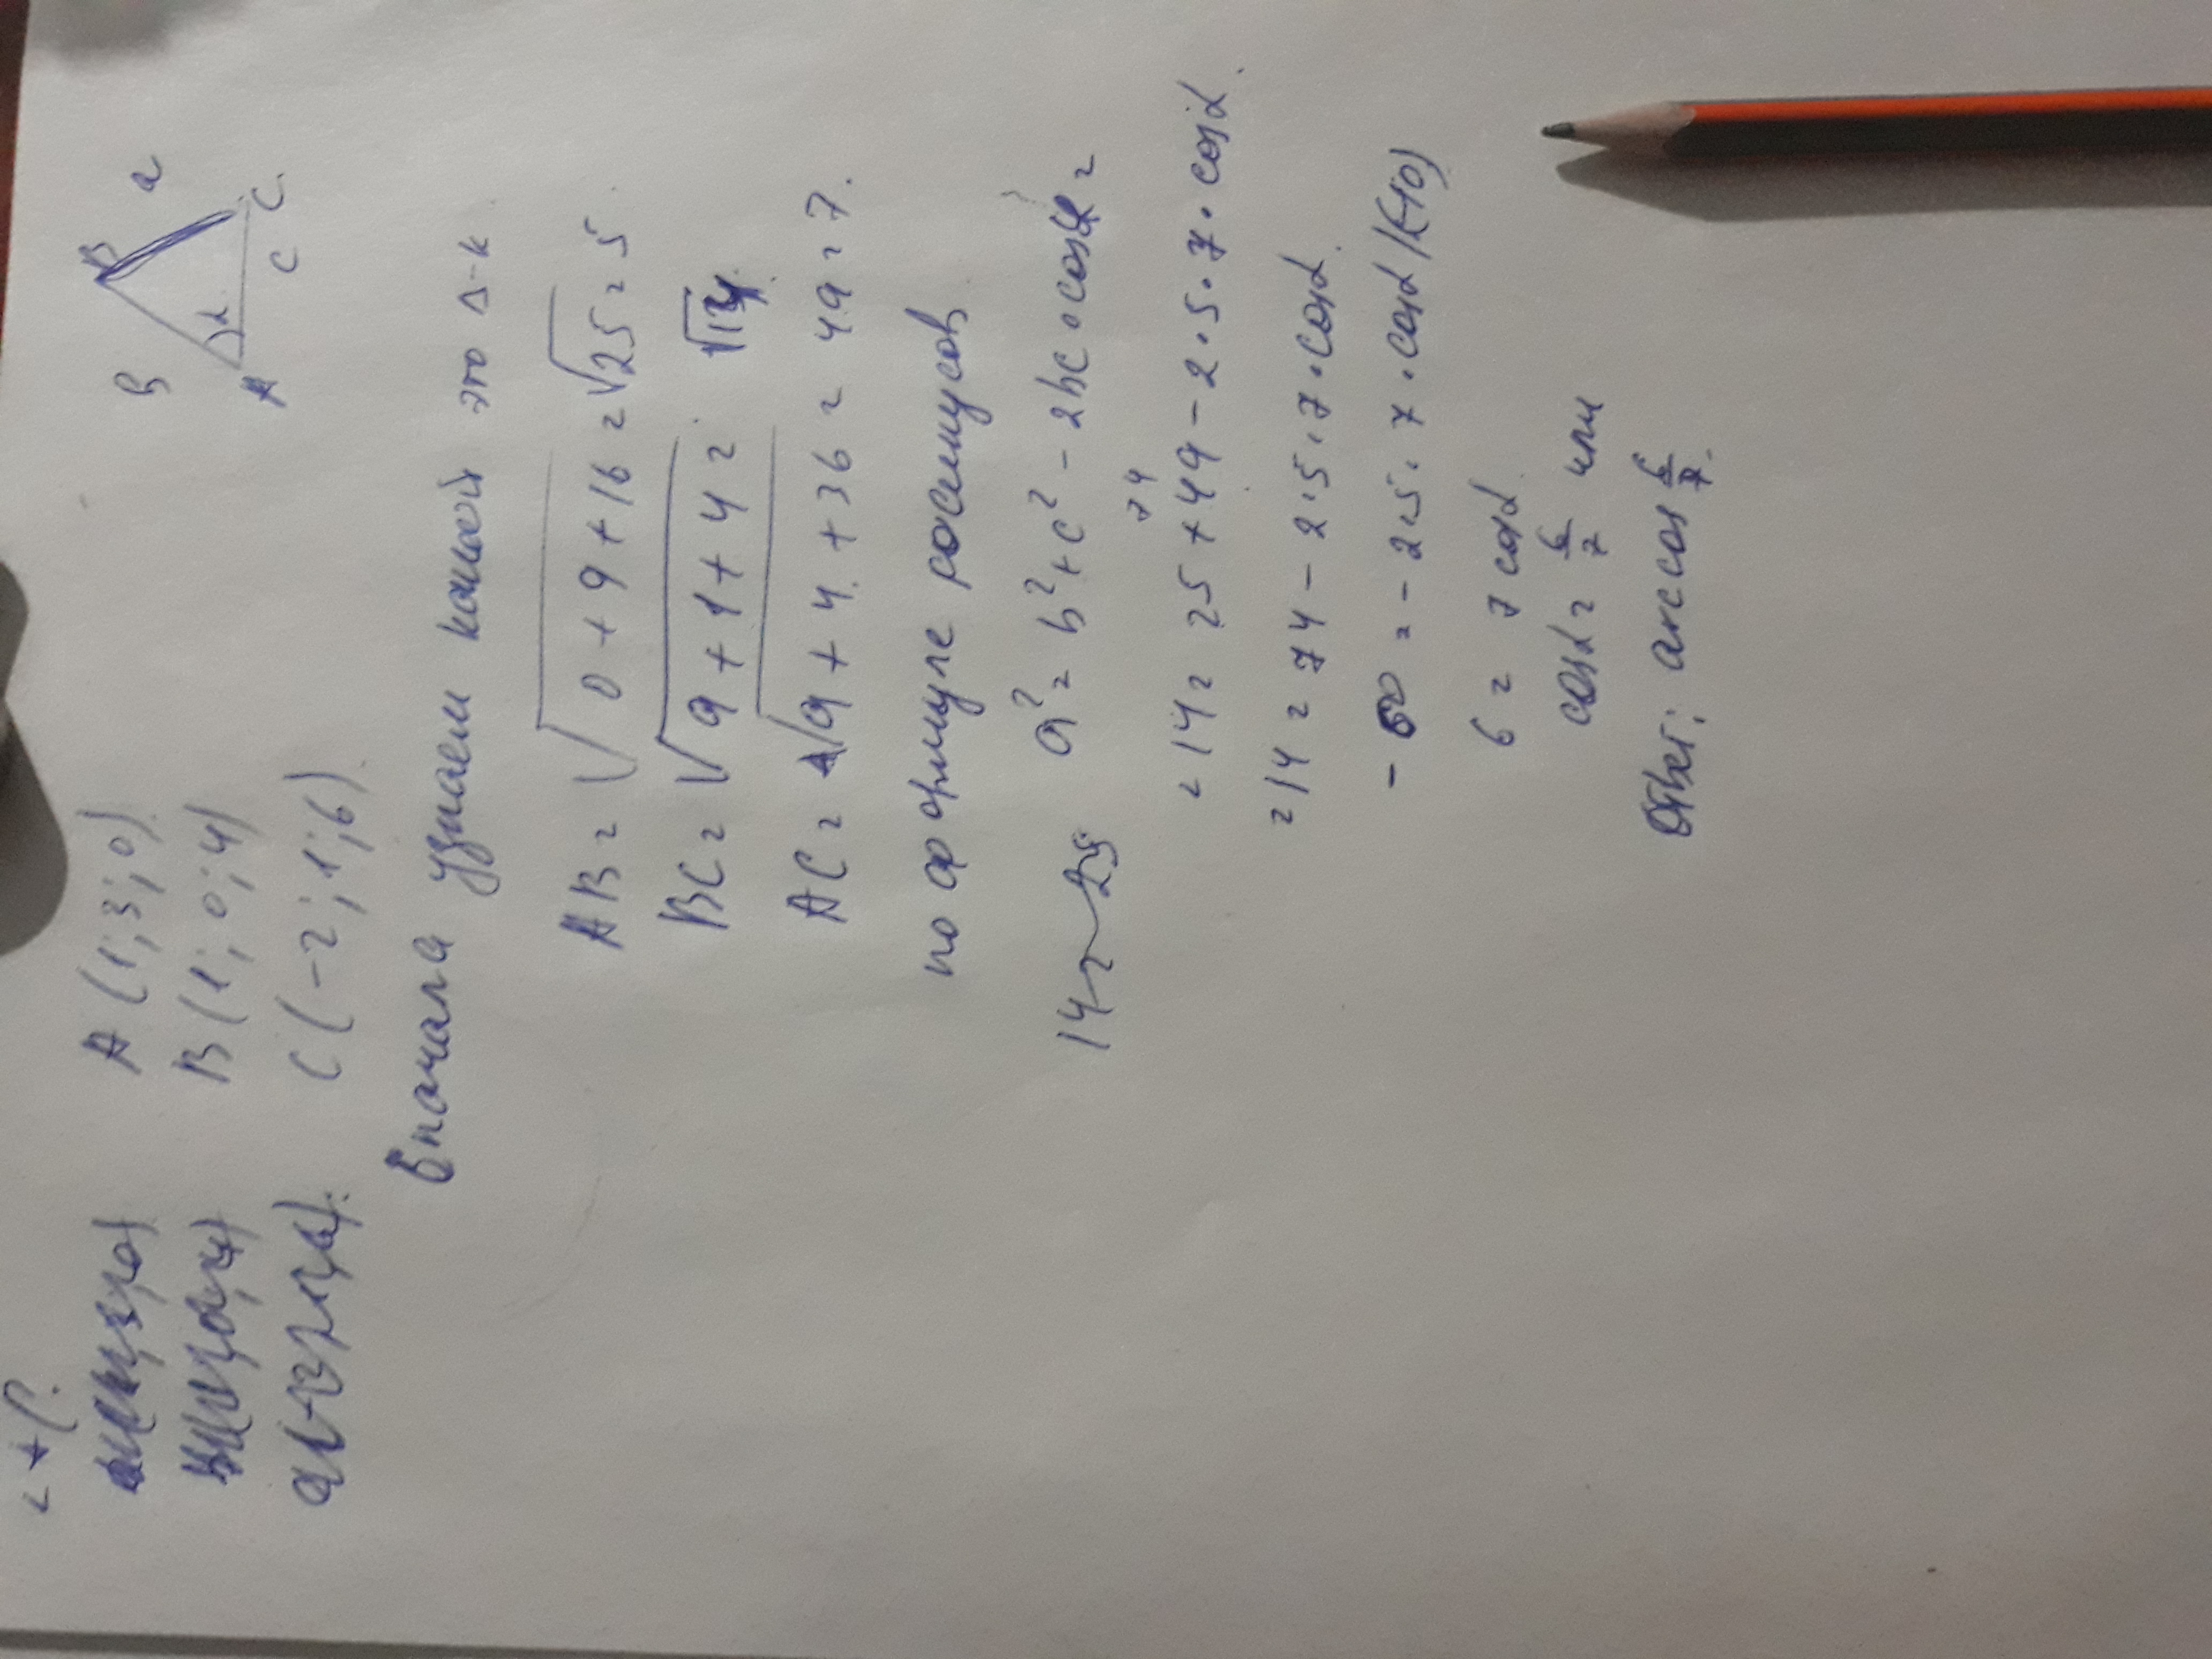 A (1; 3; 0)
B (1; 0; 4)
C (-2; 1; 6)
B
B a
A α C
c
Вначала узнаем какой это Δ-к
AB = √0 + 9 + 16 = √25 = 5.
BC = √9 + 1 + 4 = √14.
AC = √9 + 4 + 36 = 49 = 7.
по формуле косинусов
a² = b² + c² - 2bc · cosα =
74
= 14 = 25 + 49 - 2 · 5 · 7 · cosα.
= 14 = 74 - 2 · 5 · 7 · cosα.
- 60 = - 2 · 5 · 7 · cosα /(-10)
6 = 7 cosα
cosα = 6/7 или
Ответ: arccos 6/7.